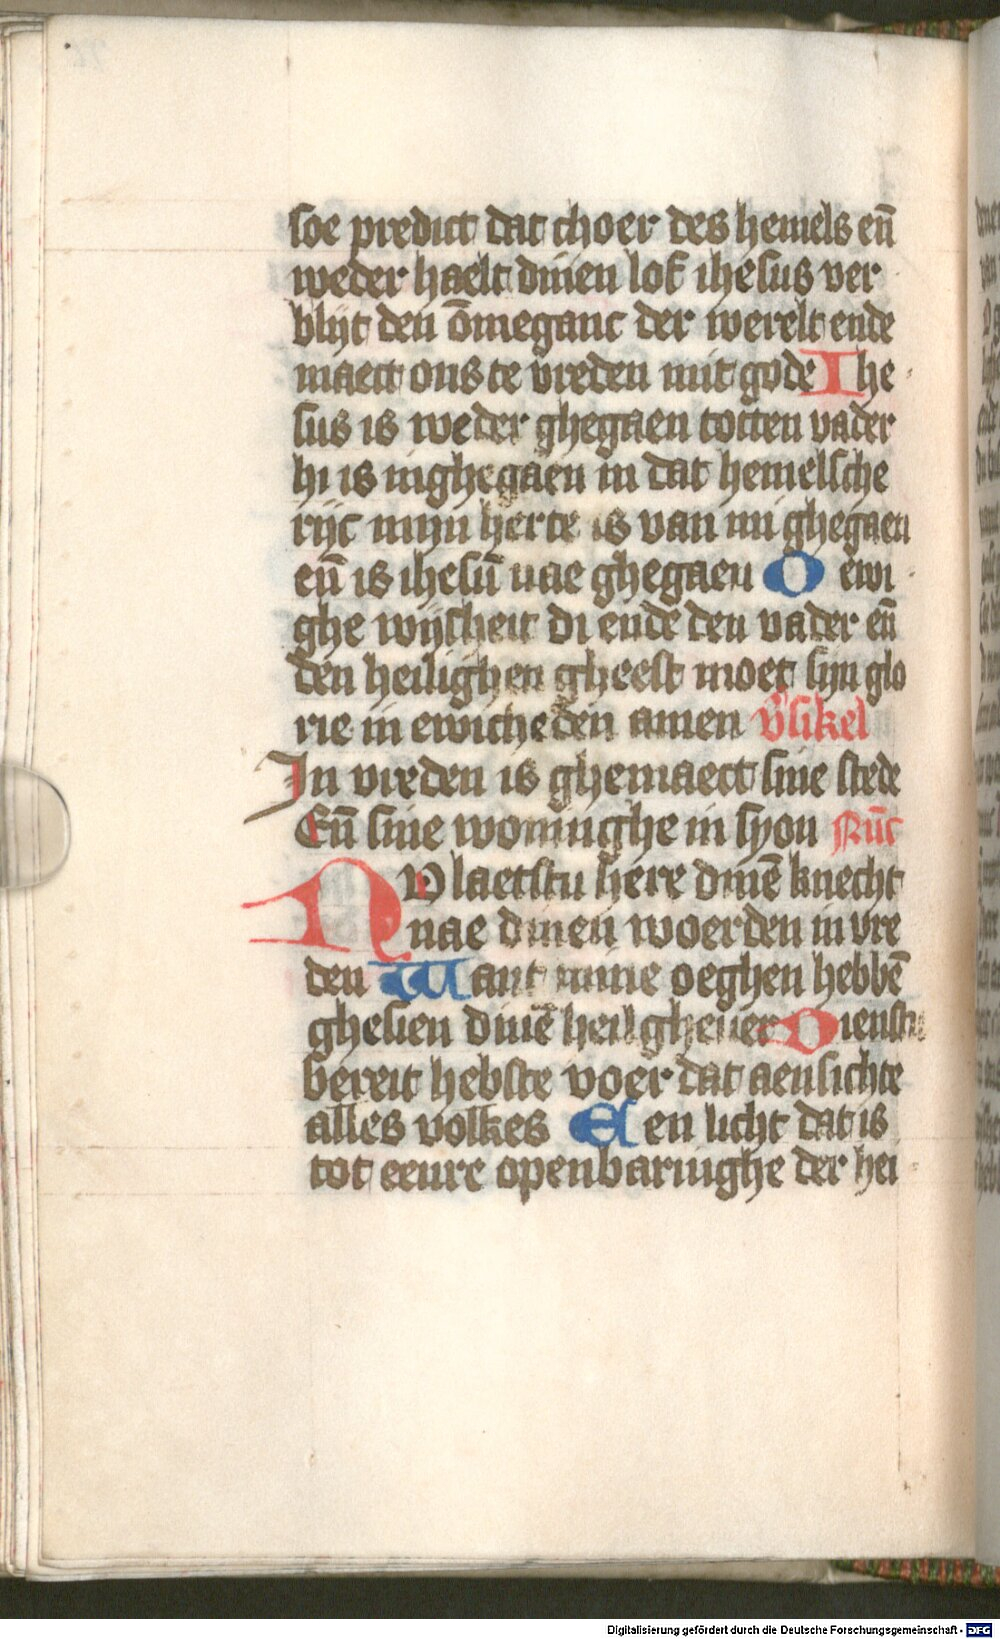 soe predict dat choer des hemels en̄
weder haelt dinen lof ihesus ver
blijt den ōmeganc der werelt ende
maect ons te vreden mit gode Ihe
sus is weder ghegaen totten vader
hi is inghegaen in dat hemelsche
rijc mijn herte is van mi ghegaen
en̄ is ihesū nae ghegaen O ewi
ghe wijsheit di ende den vader en̄
den heilighen gheest moet sijn glo
rie in ewicheden amen v̓sikel
In vreden is ghemaect sine stede
En̄ sine woninghe in syon Nūc
NV laetstu here dinē knecht
nae dinen woerden in vre
den Want mine oeghen hebbē
ghesien dinē heilgheuer Dienstu
bereit hebste voer dat aensichte
alles volkes Een licht dat is
tot eenre openbaringhe der hei
Digitalisierung gefördert durch die Deutsche Forschungsgemeinschaft - DFG